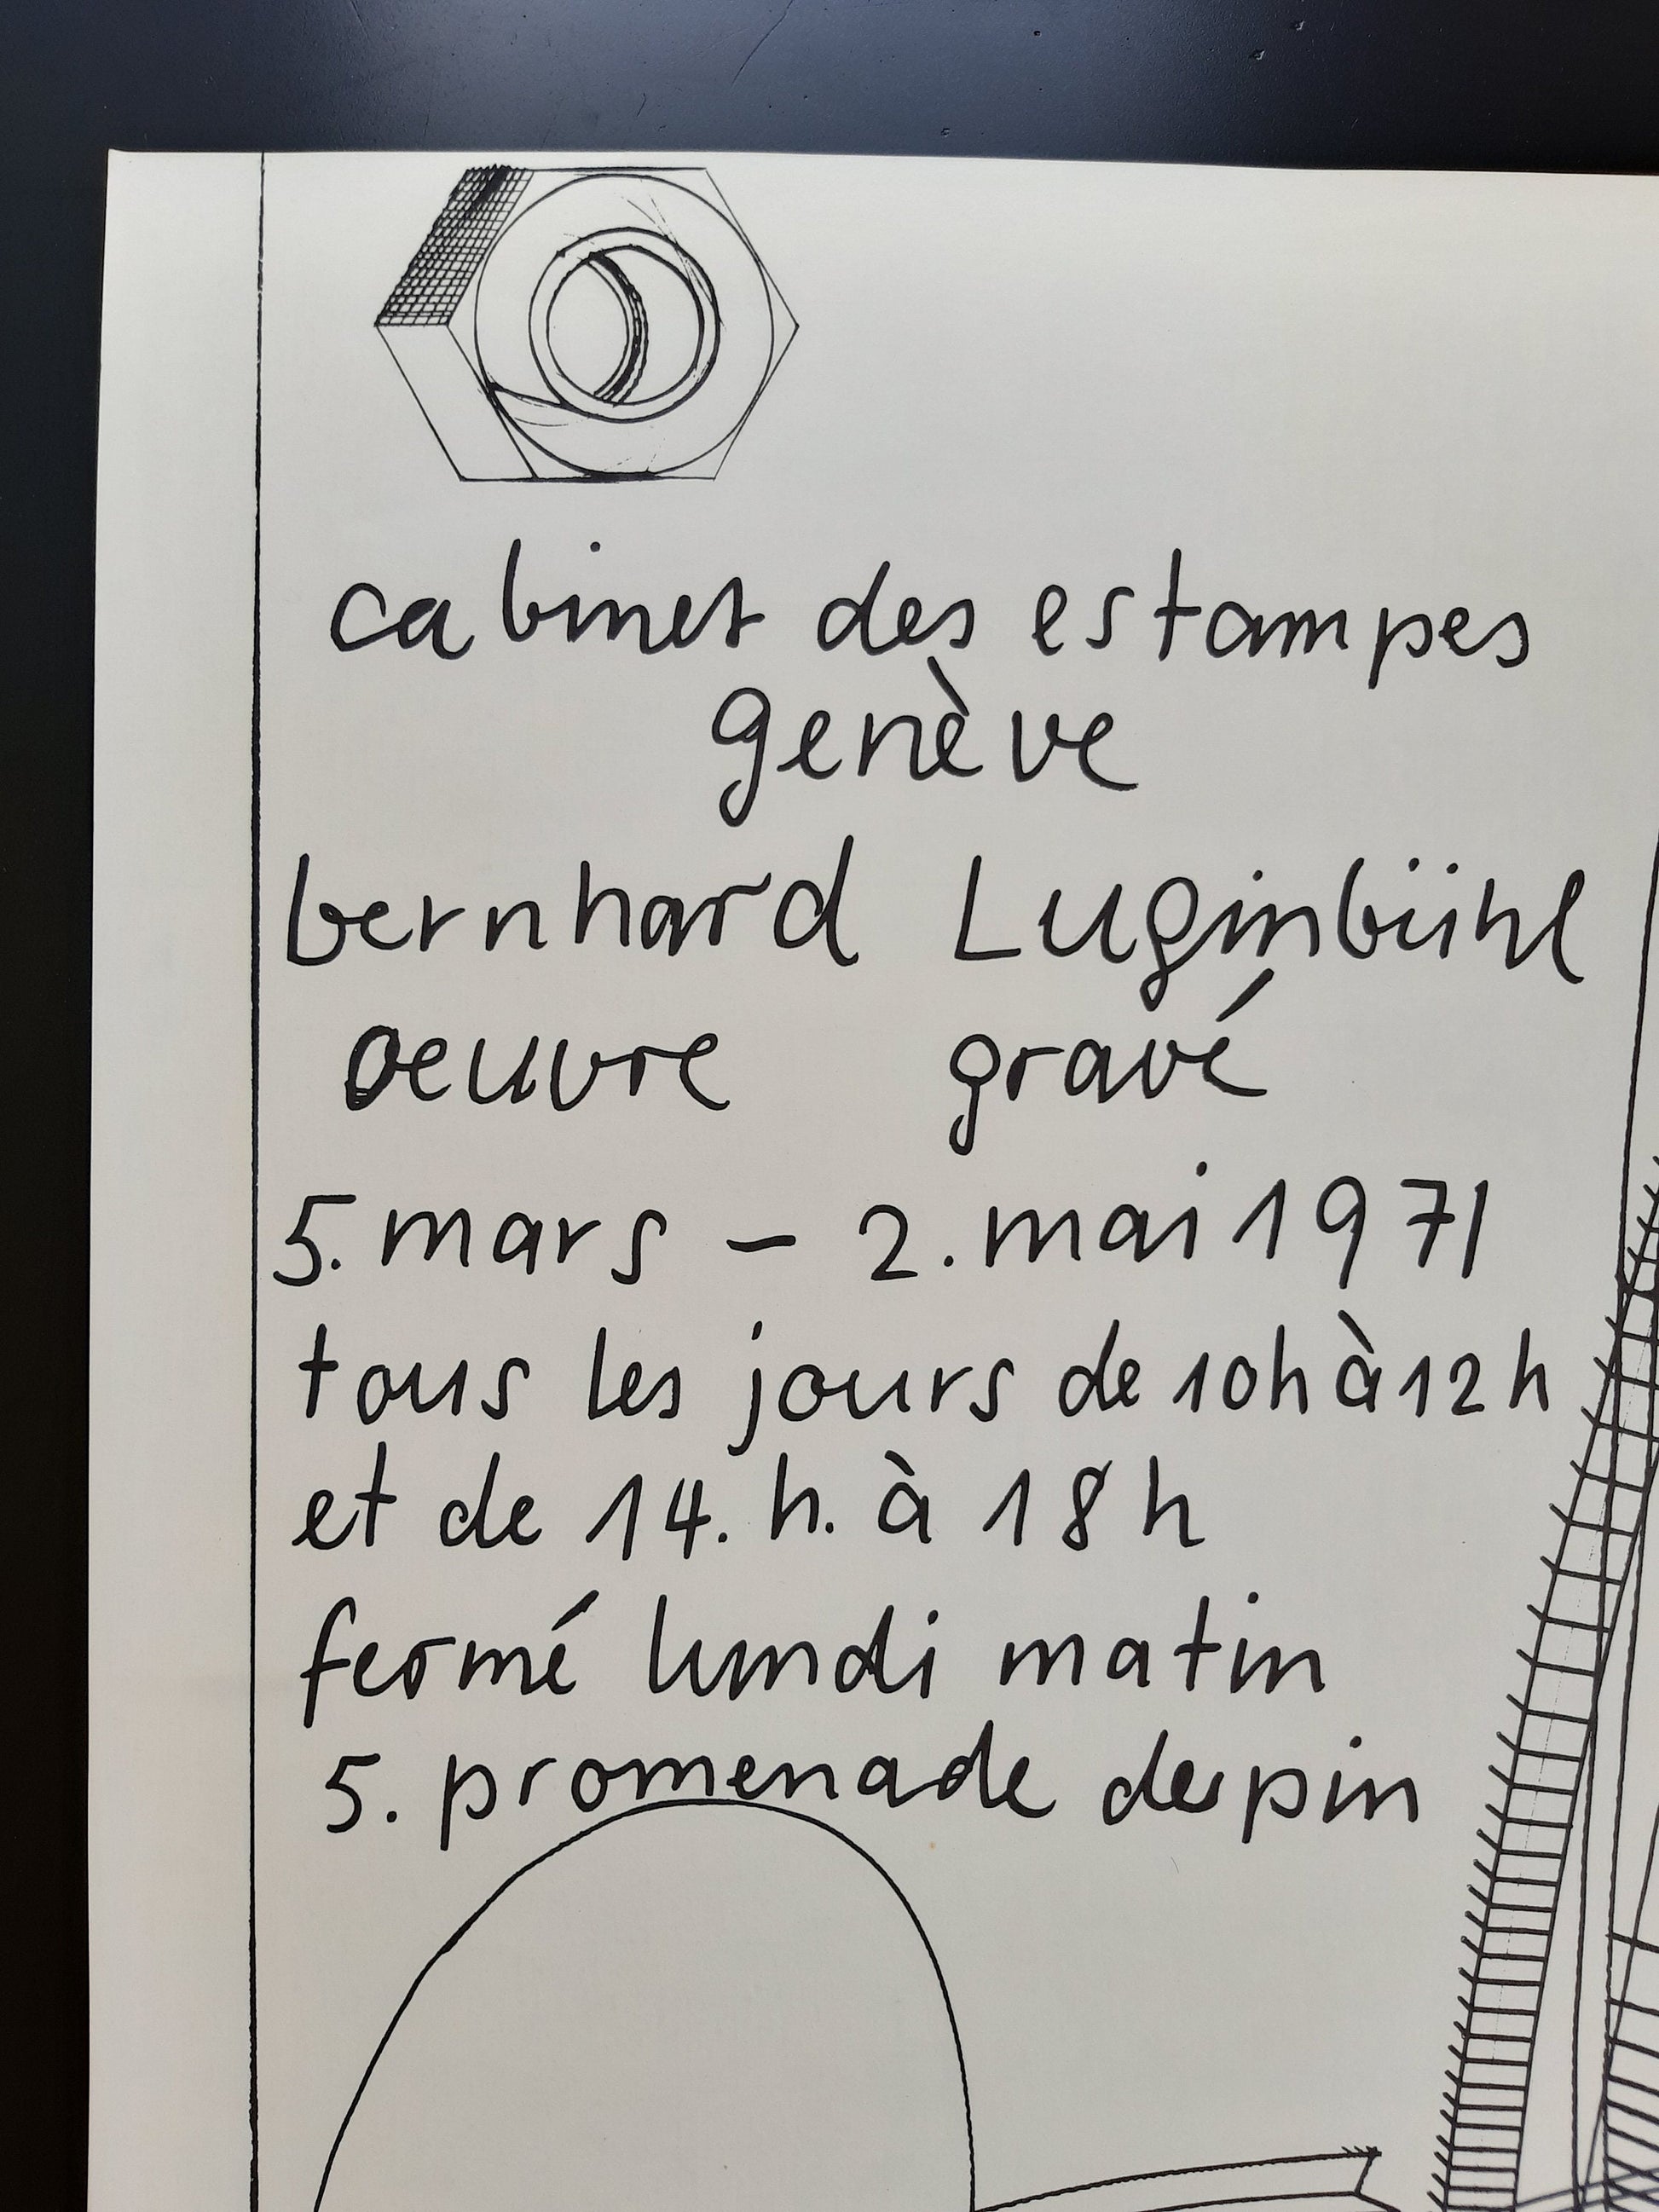 cabinet des estampes
genève
bernhard Luginbühl
oeuvre gravé
5. mars – 2. mai 1971
tous les jours de 10h à 12h
et de 14. h. à 18h
fermé lundi matin
5. promenade des pin